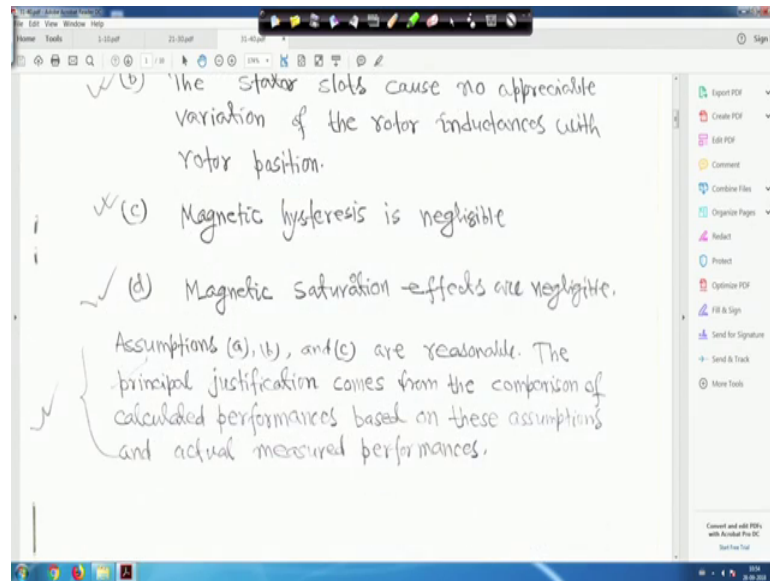 31-40.pdf - Adobe Acrobat Reader DC
File Edit View Window Help
Home Tools 1-10.pdf 21-30.pdf 31-40.pdf × Sign
(b) The stator slots cause no appreciable
variation of the rotor inductances with
rotor position.
(c) Magnetic hysteresis is negligible
(d) Magnetic saturation effects are negligible.
Assumptions (a), (b), and (c) are reasonable. The
principal justification comes from the comparison of
calculated performances based on these assumptions
and actual measured performances.
Export PDF
Create PDF
Edit PDF
Comment
Combine Files
Organize Pages
Redact
Protect
Optimize PDF
Fill & Sign
Send for Signature
Send & Track
More Tools
Convert and edit PDFs
with Acrobat Pro DC
Start Free Trial
10:54